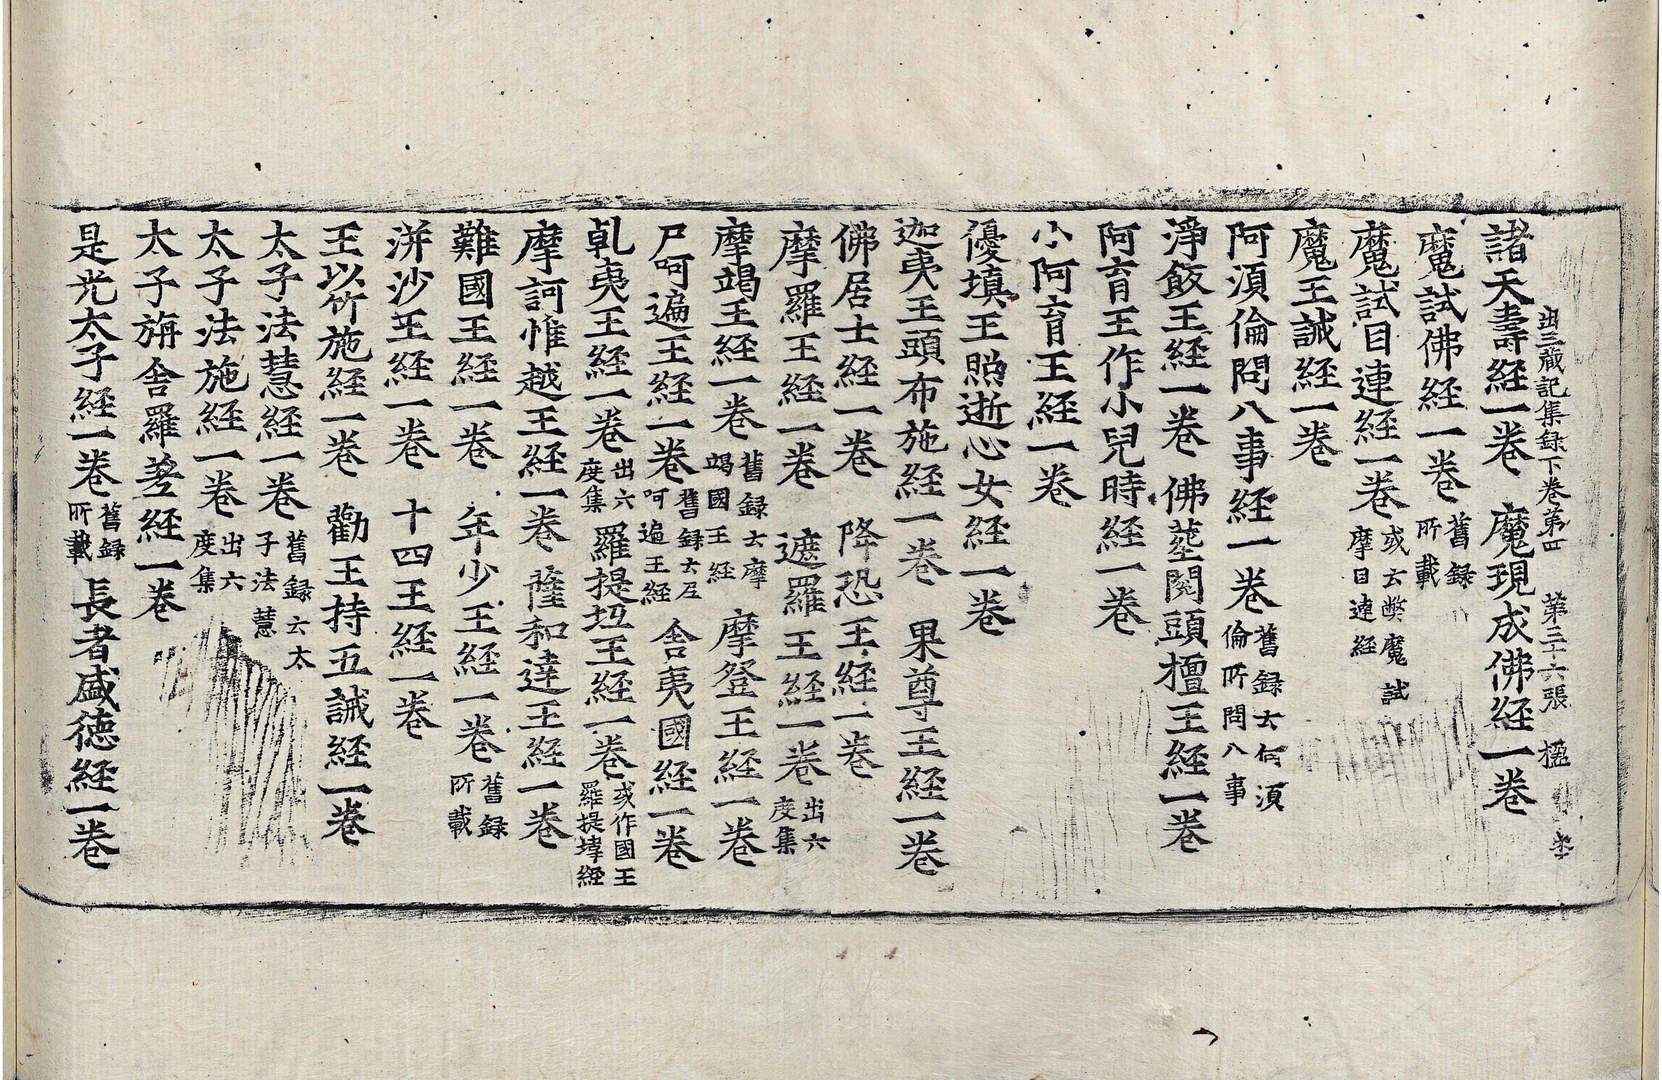 出三藏記集録下卷第四 第三十六張 楹
諸天壽經一卷 魔現成佛經一卷
魔試佛經一卷 舊録所載
魔試目連經一卷 或云弊魔試摩目連經
魔王誡經一卷
阿須倫問八事經一卷 舊録云阿須倫所問八事
淨飯王經一卷 佛葬閱頭檀王經一卷
阿育王作小兒時經一卷
小阿育王經一卷
優填王照逝心女經一卷
迦夷王頭布施經一卷 果尊王經一卷
佛居士經一卷 降恐王經一卷
摩羅王經一卷 遮羅王經一卷 出六度集
摩竭王經一卷 舊録云摩竭國王經 摩登王經一卷
尸呵遍王經一卷 舊録云尸呵遍王經 舍夷國經一卷
乹夷王經一卷 出六度集 羅提㘶王經一卷 或作國王羅提㙔經
摩訶惟越王經一卷 薩和達王經一卷
難國王經一卷 年少王經一卷 舊録所載
洴沙王經一卷 十四王經一卷
王以竹施經一卷 勸王持五誡經一卷
太子法慧經一卷 舊録云太子法慧
太子法施經一卷 出六度集
太子旃舍羅經一卷
是光太子經一卷 舊録所載 長者盛德經一卷